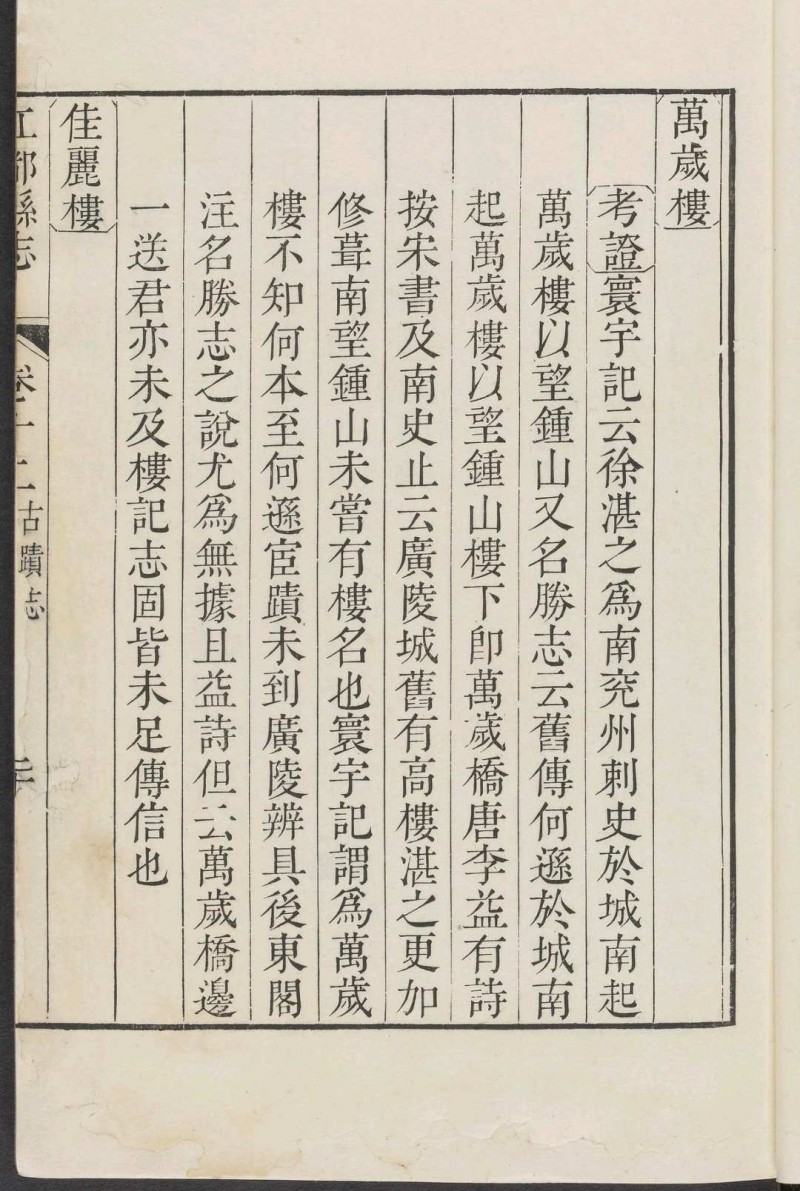 萬歲樓
考證寰宇記云徐湛之爲南兖州刺史於城南起
萬歲樓以望鍾山又名勝志云舊傳何遜於城南
起萬歲樓以望鍾山樓下卽萬歲橋唐李益有詩
按宋書及南史止云廣陵城舊有高樓湛之更加
修葺南望鍾山未嘗有樓名也寰宇記謂爲萬歲
樓不知何本至何遜宦蹟未到廣陵辨具後東閣
注名勝志之說尤爲無據且益詩但云萬歲橋邊
一送君亦未及樓記志固皆未足傳信也
佳麗樓
江都縣志 卷十二古蹟志 二十